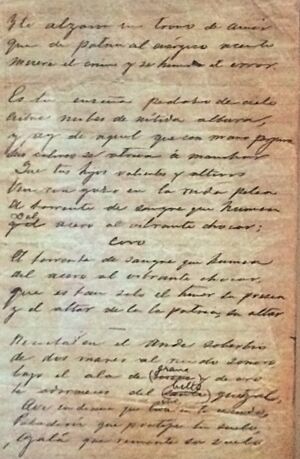 Y le alzaron un trono de amor
que de patria al enérgico acento
Muere el crimen y se hunde el error.
Es tu enseña pedazo de cielo
Entre nubes de nítida albura,
y ay de aquel que con mano perjura
Sus colores se atreva á manchar
Que tus hijos valientes y altivos
Ven con gozo en la ruda pelea
El torrente de sangre que humea
Del
acero al vibrante chocar;
Coro
El torrente de sangre que humea
del acero al vibrante chocar,
que es tan solo el honor su presea
y el altar de la patria, su altar
Recostada en el Ande soberbio
de dos mares al ruido sonoro
grana
bajo el ala de y de oro
bello
te adormeces del quetzal
Ave indiana que vive en tu escudo,
Paladion que protege tu suelo,
Ojalá que remonte su vuelo